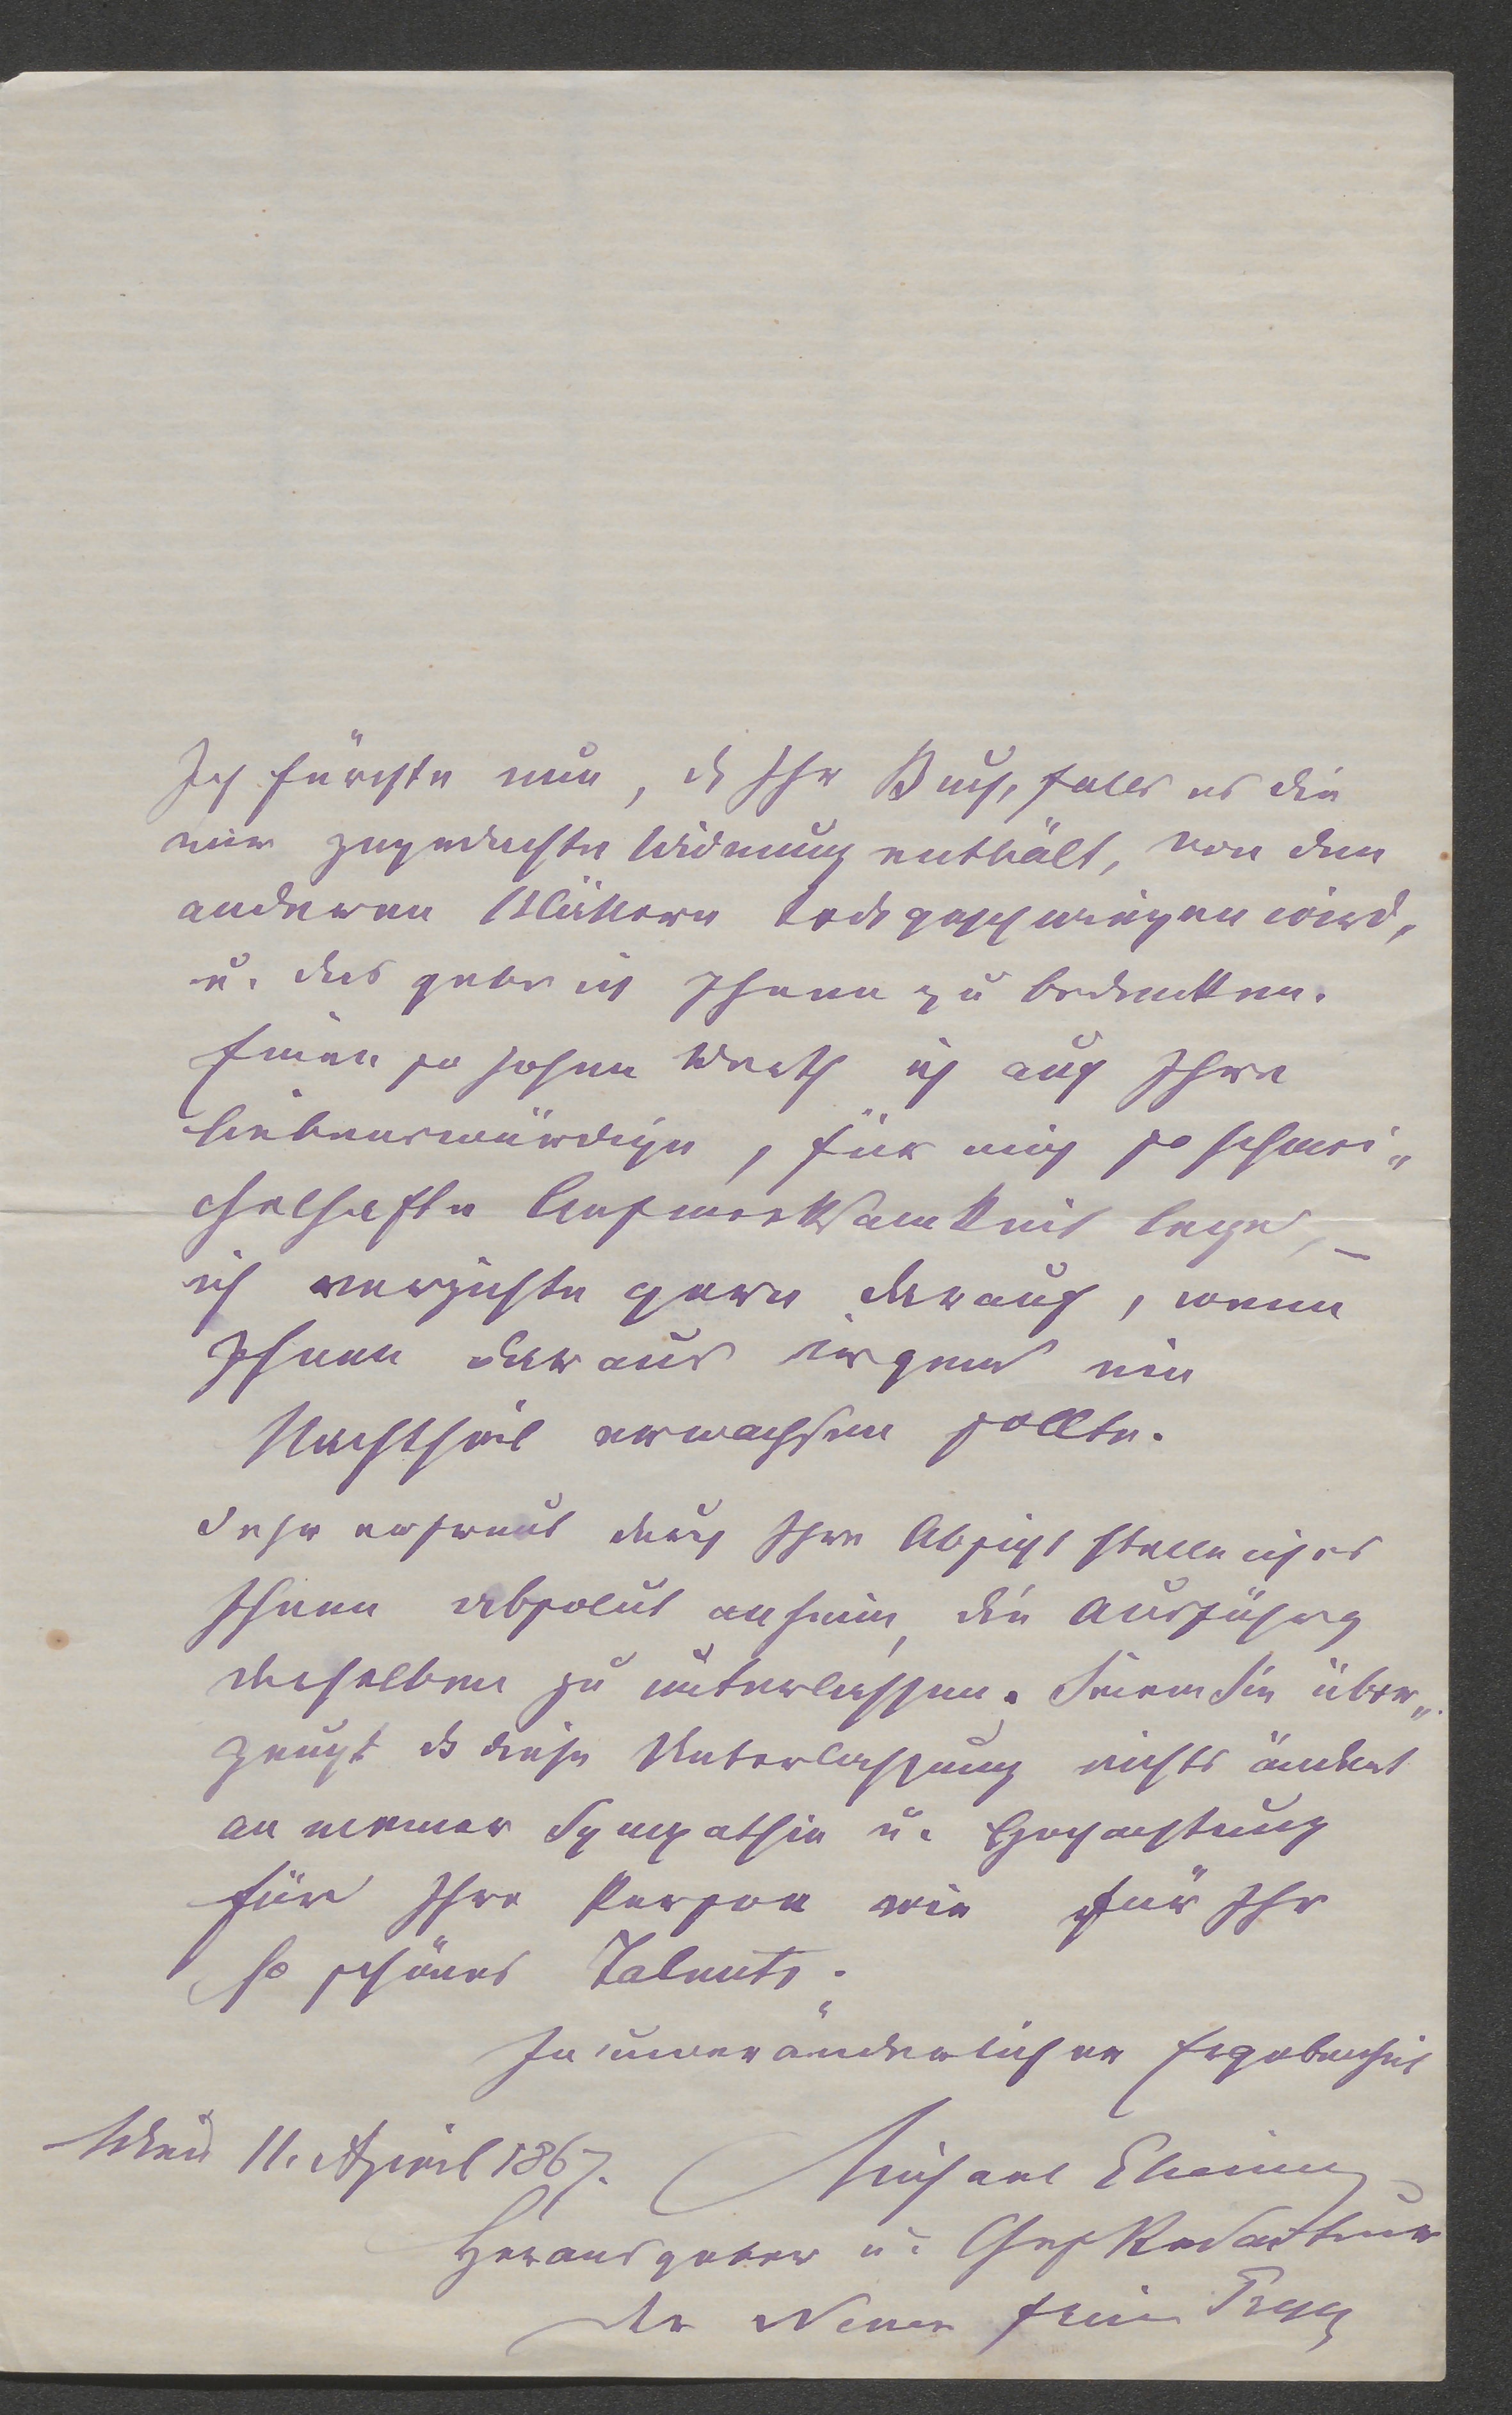 Ich fürchte nun, ds Ihr Buch, falls es die
mir zugedachte Widmung enthält, von den
anderen Blättern todtgeschwiegen wird,
u. das gebe ich Ihnen zu bedenken.
Einen so hohen Werth ich auf Ihre
liebenswürdige, für mich so schmei„
chelhafte Aufmerksamkeit lege, –
ich verzichte gern darauf, wenn
Ihnen daraus irgend ein
Nachtheil erwachsen sollte.
Sehr erfreut durch Ihre Absicht stelle ich es
Ihnen absolut anheim, die Ausführg
derselben zu unterlassen. Seien Sie über„
zeugt ds diese Unterlassung nichts ändert
an meiner Sympathie u. Hochachtung
für Ihre Person wie für Ihr
so schönes Talent.
In unveränderlicher Ergebenheit
Wien 11. April 1867. Michael Etienne
Herausgeber u. Chef Redacteur
der Neuen freien Presse